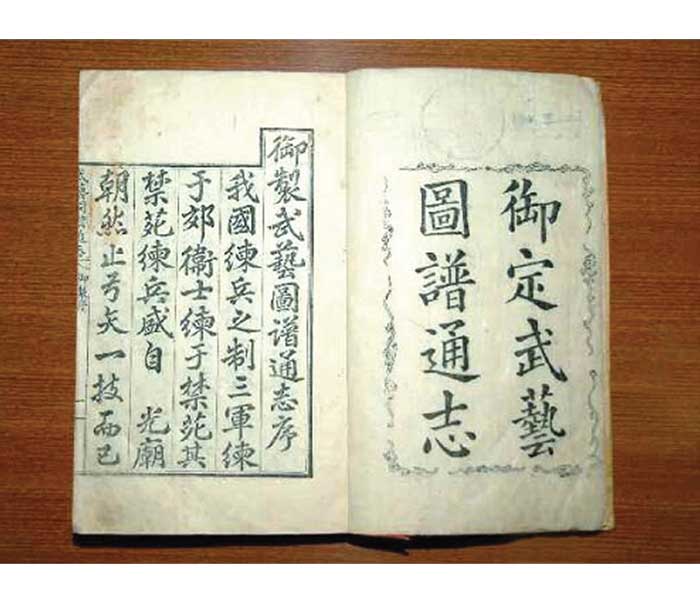 御定武藝
圖譜通志
御製武藝圖譜通志序
我國練兵之制三軍練
于郊衞士練于禁苑其
禁苑練兵盛自 光廟
朝然止弓矢一技而已